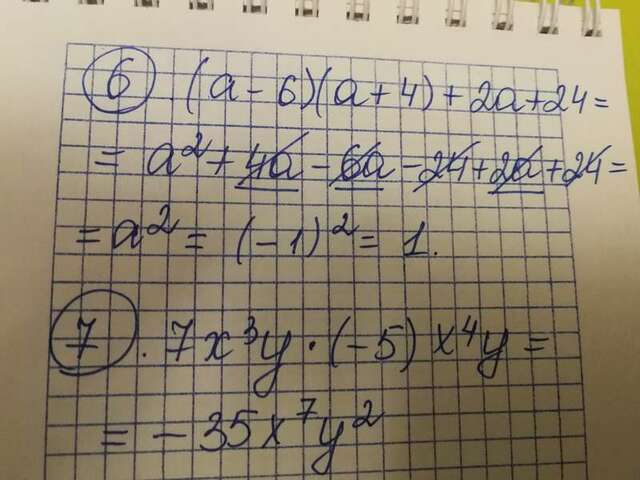 6 (a - 6)(a + 4) + 2a + 24 =
= a² + 4a - 6a - 24 + 2a + 24 =
= a² = (-1)² = 1.
7. 7x³y · (-5) x⁴y =
= - 35x⁷y²